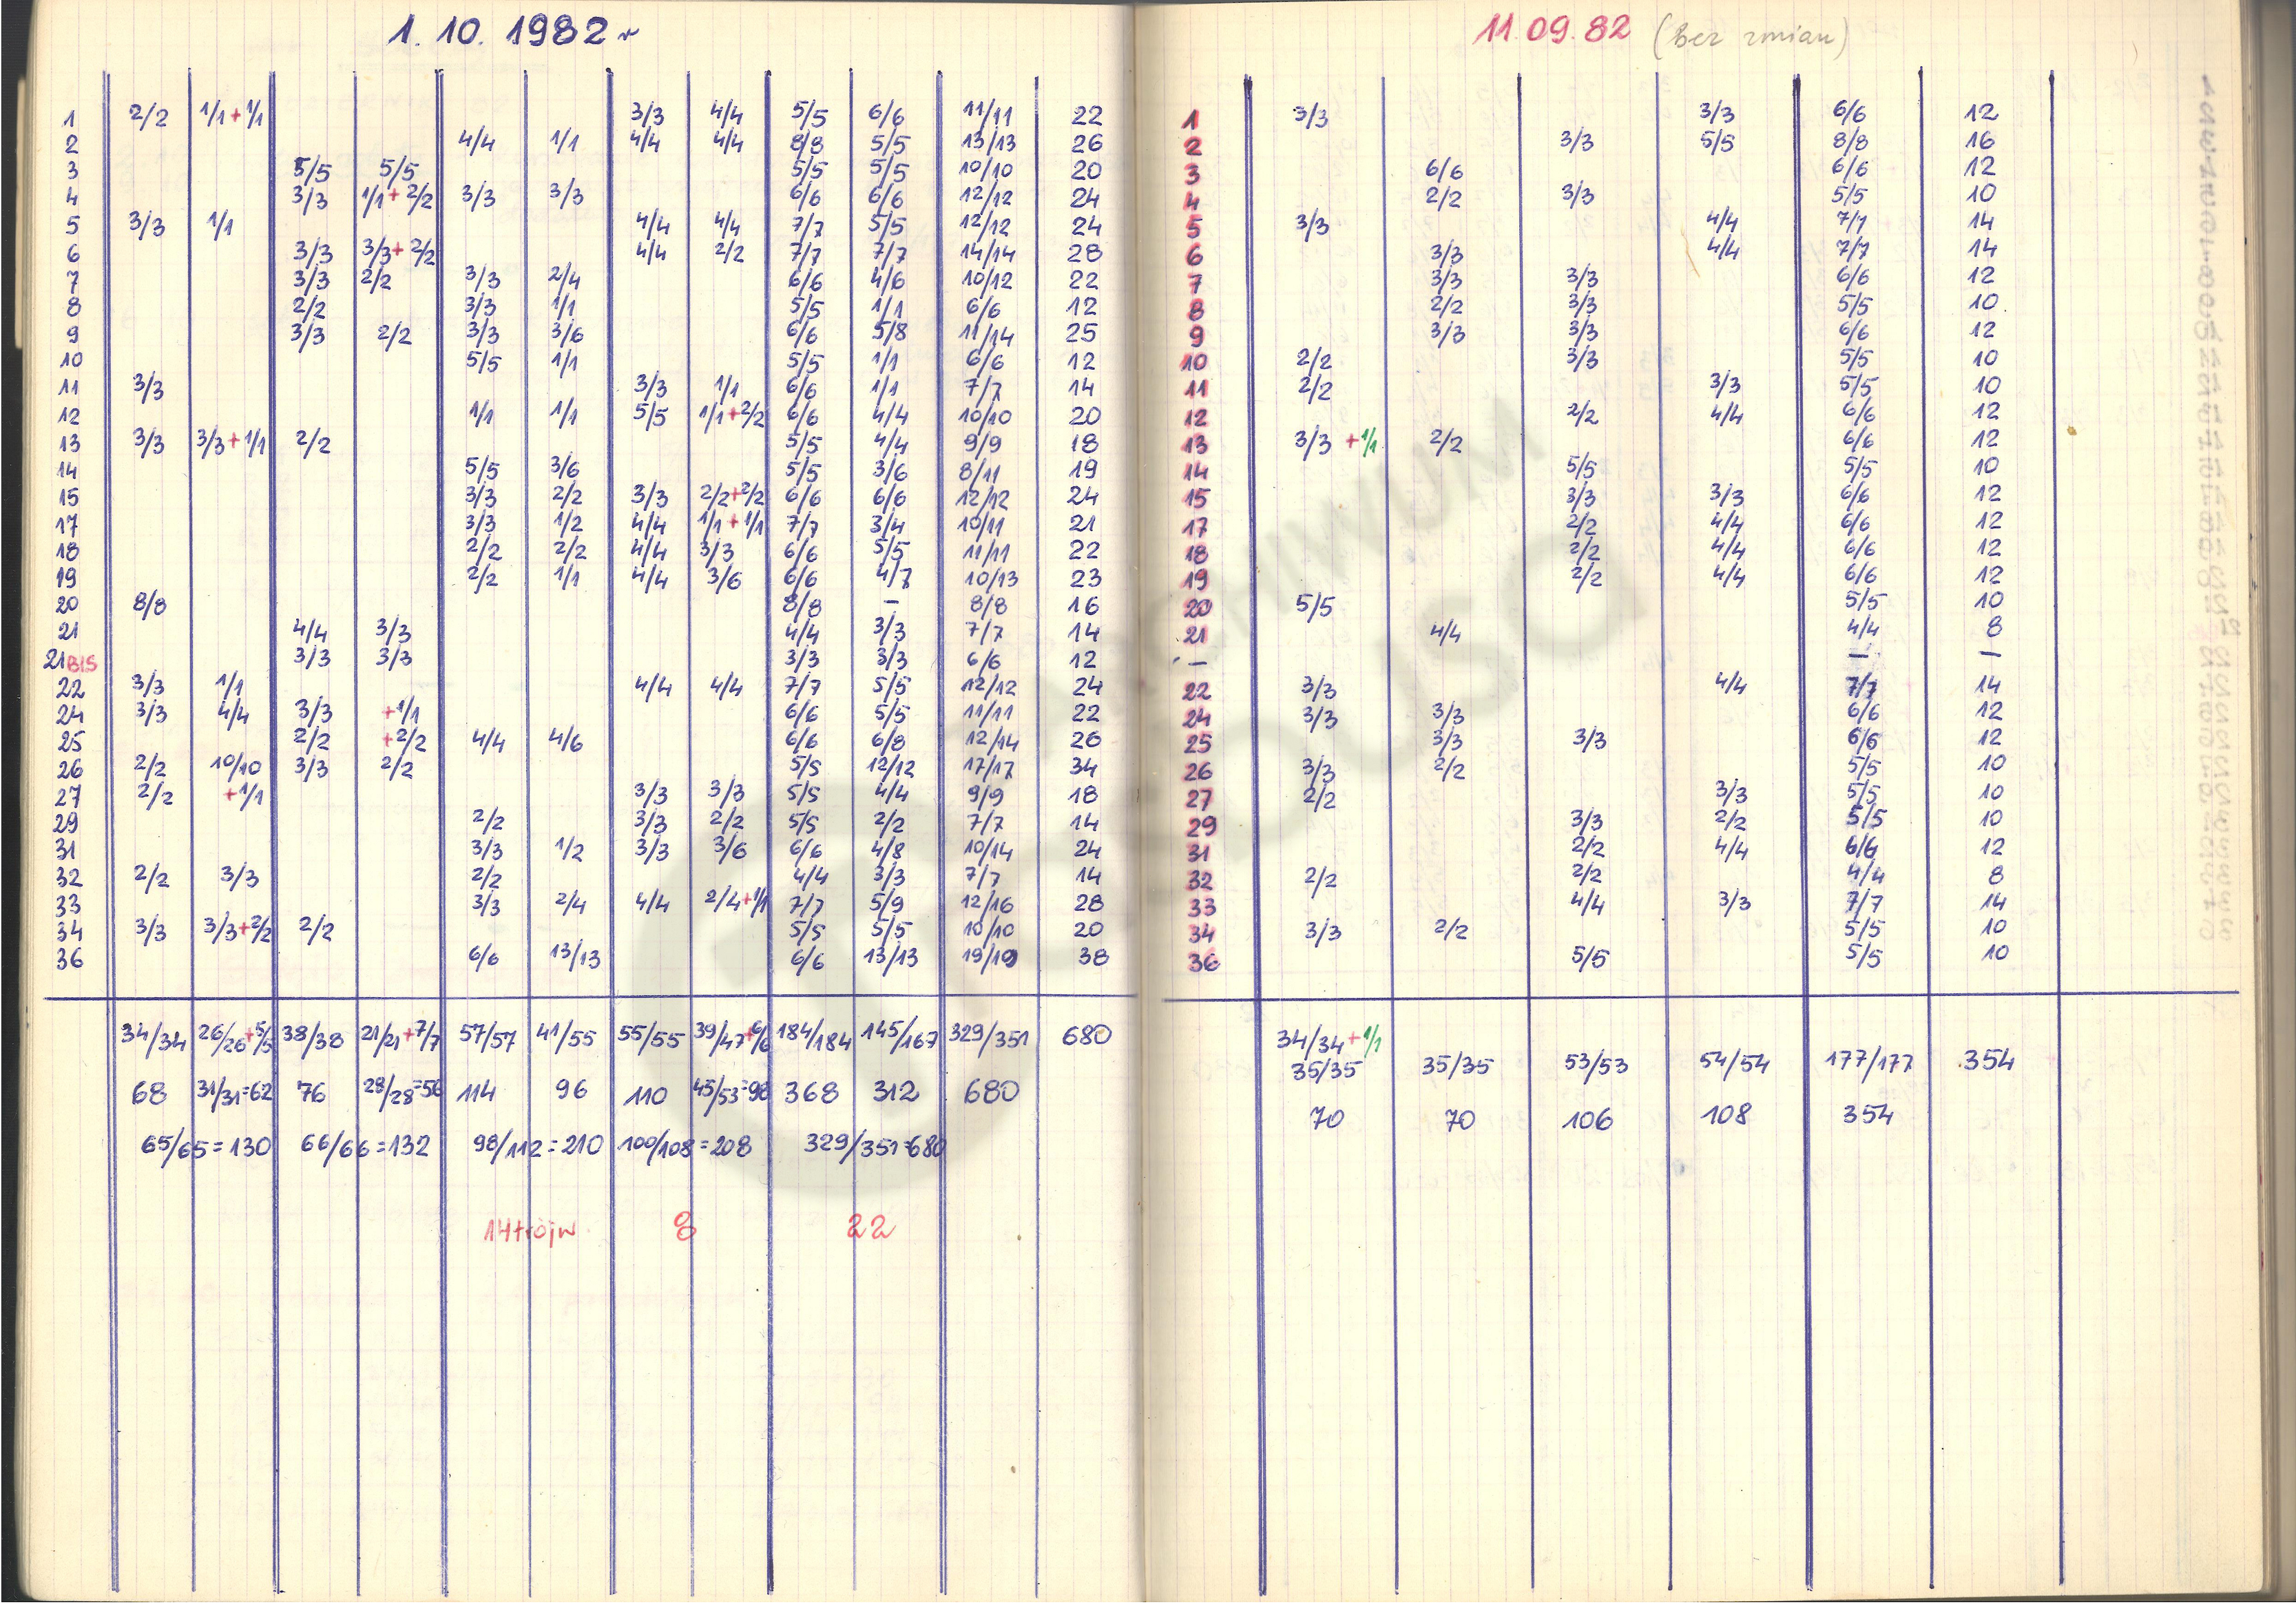 1. 10. 1982 r
1 2/2 1/1+1/1 3/3 4/4 5/5 6/6 11/11 22
2 4/4 1/1 4/4 4/4 8/8 5/5 13/13 26
3 5/5 5/5 5/5 5/5 10/10 20
4 3/3 1/1+2/2 3/3 3/3 6/6 6/6 12/12 24
5 3/3 1/1 4/4 4/4 7/7 5/5 12/12 24
6 3/3 3/3+2/2 4/4 2/2 7/7 7/7 14/14 28
7 3/3 2/2 3/3 2/4 6/6 4/6 10/12 22
8 2/2 3/3 1/1 5/5 1/1 6/6 12
9 3/3 2/2 3/3 3/6 6/6 5/8 11/14 25
10 5/5 1/1 5/5 1/1 6/6 12
11 3/3 3/3 1/1 6/6 1/1 7/7 14
12 1/1 1/1 5/5 1/1+2/2 6/6 4/4 10/10 20
13 3/3 3/3+1/1 2/2 5/5 4/4 9/9 18
14 5/5 3/6 5/5 3/6 8/11 19
15 3/3 2/2 3/3 2/2+2/2 6/6 6/6 12/12 24
17 3/3 1/2 4/4 1/1+1/1 7/7 3/4 10/11 21
18 2/2 2/2 4/4 3/3 6/6 5/5 11/11 22
19 2/2 1/1 4/4 3/6 6/6 4/7 10/13 23
20 8/8 8/8 – 8/8 16
21 4/4 3/3 4/4 3/3 7/7 14
21BIS 3/3 3/3 3/3 3/3 6/6 12
22 3/3 1/1 4/4 4/4 7/7 5/5 12/12 24
24 3/3 4/4 3/3 +1/1 6/6 5/5 11/11 22
25 2/2 +2/2 4/4 4/6 6/6 6/8 12/14 26
26 2/2 10/10 3/3 2/2 5/5 12/12 17/17 34
27 2/2 +1/1 3/3 3/3 5/5 4/4 9/9 18
29 2/2 3/3 2/2 5/5 2/2 7/7 14
31 3/3 1/2 3/3 3/6 6/6 4/8 10/14 24
32 2/2 3/3 2/2 4/4 3/3 7/7 14
33 3/3 2/4 4/4 2/4+1/1 7/7 5/9 12/16 28
34 3/3 3/3+2/2 2/2 5/5 5/5 10/10 20
36 6/6 13/13 6/6 13/13 19/19 38
34/34 26/26+5/5 38/38 21/21+7/7 57/57 41/55 55/55 39/47+6/6 184/184 145/167 329/351 680
68 31/31=62 76 28/28=56 114 96 110 45/53=98 368 312 680
65/65=130 66/66=132 98/112=210 100/108=208 329/351=680
14trójw 8 22
11.09.82 (Bez zmian)
1 3/3 3/3 6/6 12
2 3/3 5/5 8/8 16
3 6/6 6/6 12
4 2/2 3/3 5/5 10
5 3/3 4/4 7/7 14
6 3/3 4/4 7/7 14
7 3/3 3/3 6/6 12
8 2/2 3/3 5/5 10
9 3/3 3/3 6/6 12
10 2/2 3/3 5/5 10
11 2/2 3/3 5/5 10
12 2/2 4/4 6/6 12
13 3/3 +1/1 2/2 6/6 12
14 5/5 5/5 10
15 3/3 3/3 6/6 12
17 2/2 4/4 6/6 12
18 2/2 4/4 6/6 12
19 2/2 4/4 6/6 12
20 5/5 5/5 10
21 4/4 4/4 8
– – –
22 3/3 4/4 7/7 14
24 3/3 3/3 6/6 12
25 3/3 3/3 6/6 12
26 3/3 2/2 5/5 10
27 2/2 3/3 5/5 10
29 3/3 2/2 5/5 10
31 2/2 4/4 6/6 12
32 2/2 2/2 4/4 8
33 4/4 3/3 7/7 14
34 3/3 2/2 5/5 10
36 5/5 5/5 10
34/34+1/1
35/35 35/35 53/53 54/54 177/177 354
70 70 106 108 354